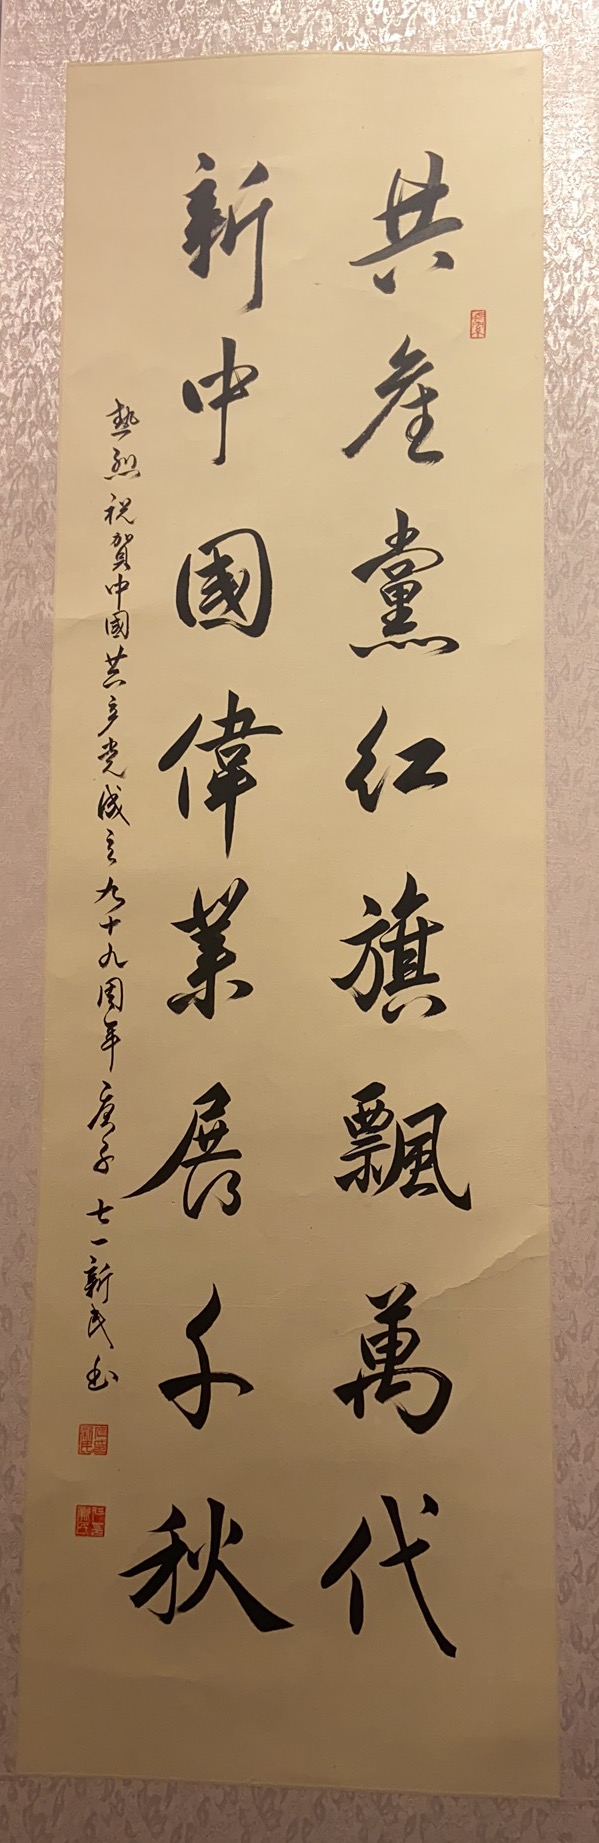 共产黨红旗飄萬代
新中國偉業展千秋
熱烈祝賀中國共产党成立九十九周年庚子七一新民书